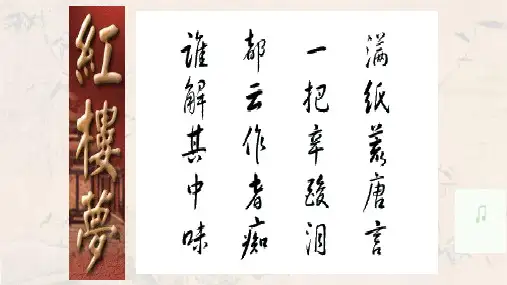 紅樓夢
满纸荒唐言
一把辛酸泪
都云作者痴
谁解其中味